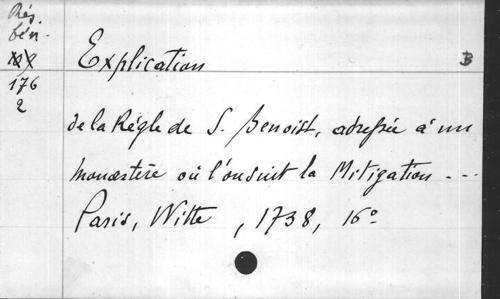 Rés.
bén.
176
2
Explication
B
de la Règle de S. Benoist, adressée à un
monastère où l'on suit la Mitigation ---
Paris, Witte, 1738, 16°